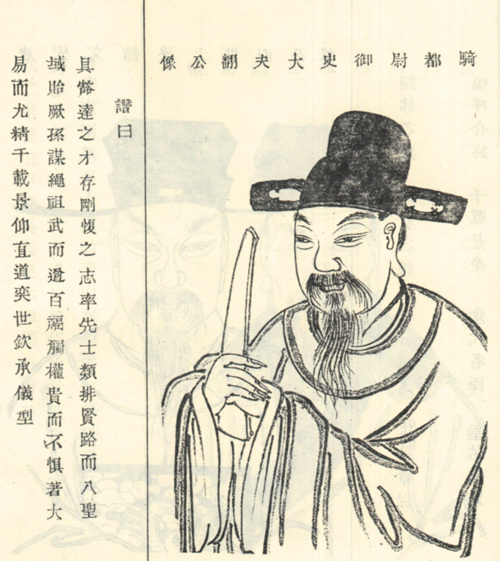 騎都尉御史大夫翻公像
譜曰
具達之才存剛愎之志率先士類排賢路而入聖
域貽厥孫謀繩祖武而邀百福觸權貴而不惧著大
易而尤精千載景仰直道奕世欽承儀型